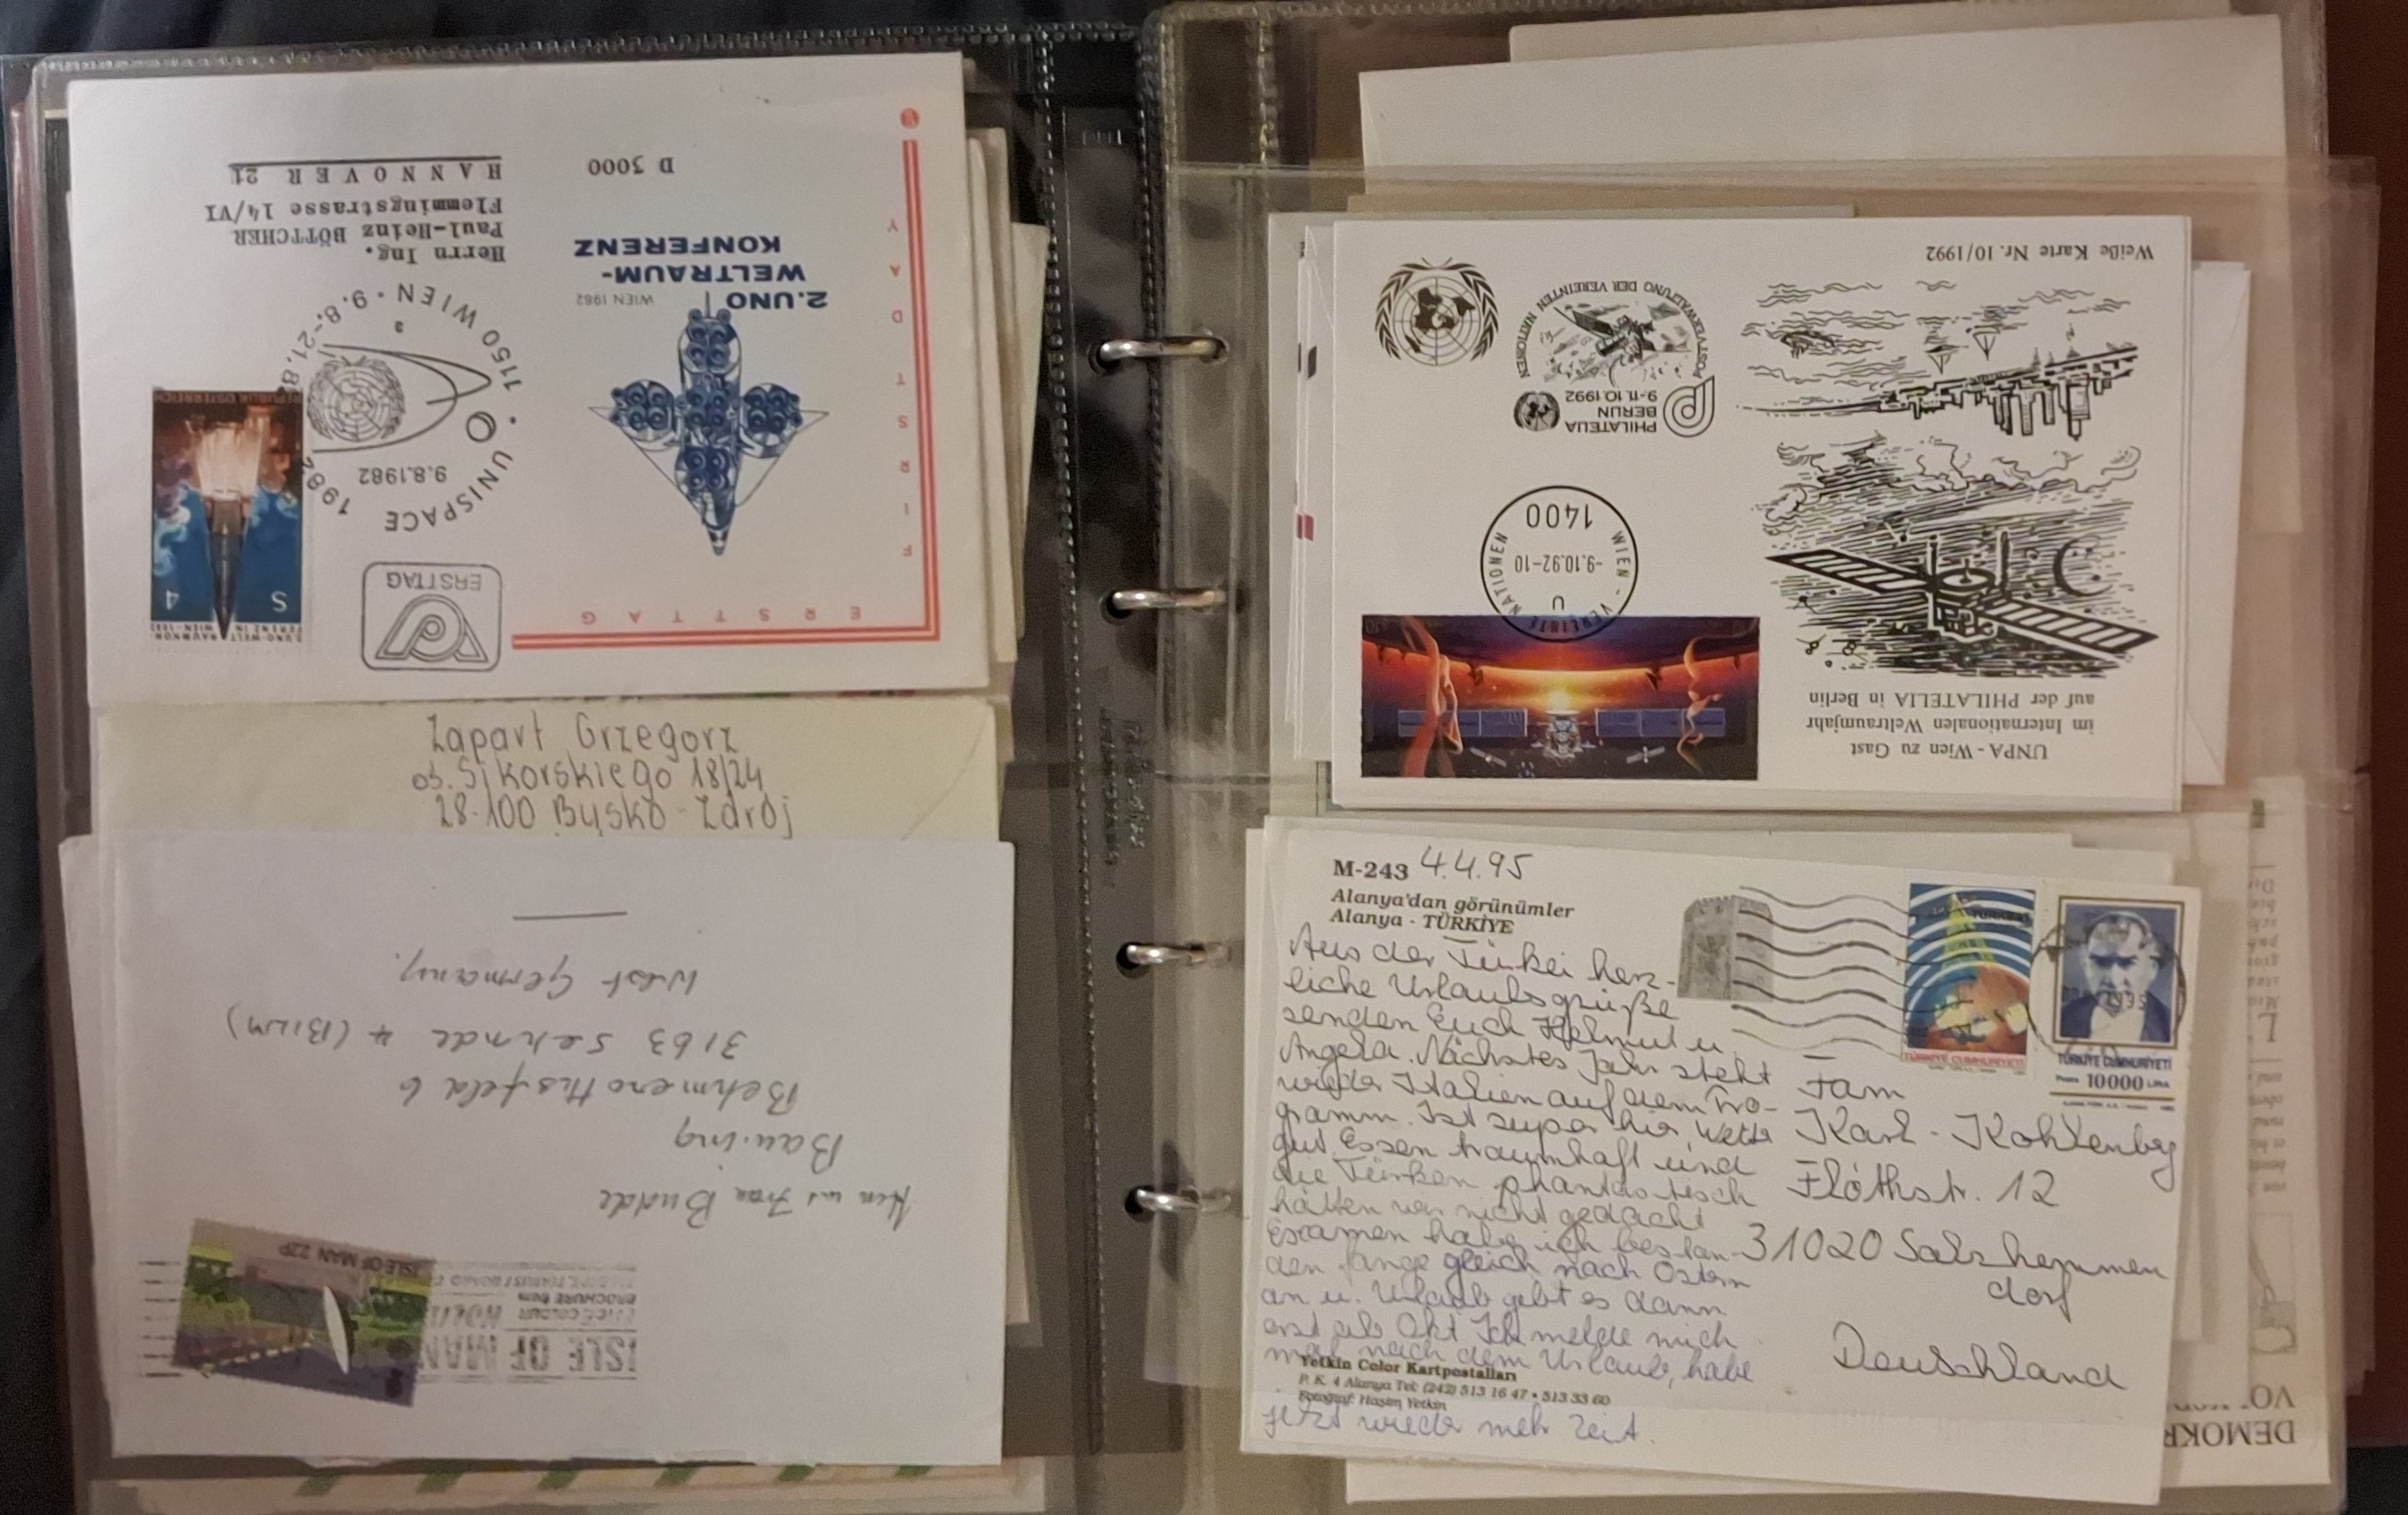 D 3000
Herrn Ing.
Paul-Heinz BÖTTCHER
Flemmingstrasse 14/VI
HANNOVER 21
2.UNO
WIEN 1982
WELTRAUM-
KONFERENZ
FIRST DAY
ERSTTAG
ERSTTAG
1150 WIEN · 9.8.-21.8.1982 · UNISPACE
9.8.1982
a
S 4
REPUBLIK ÖSTERREICH
Zapart Grzegorz
os. Sikorskiego 18/24
28-100 Busko-Zdrój
ISLE OF MAN 22P
ISLE OF MAN
FREE COLOUR
BROCHURE from
Herrn u Frau Budde
Bau.ing
Behmerothsfeld 6
3163 Sehnde 4 (Bilm)
West Germany.
UNPA - Wien zu Gast
im Internationalen Weltraumjahr
auf der PHILATELIA in Berlin
WIEN - VEREINTE NATIONEN
U
-9.10.92-10
1400
PHILATELIA
BERLIN
9-11.10.1992
POSTVERWALTUNG DER VEREINTEN NATIONEN
Weiße Karte Nr. 10/1992
M-243 4.4.95
Alanya'dan görünümler
Alanya - TÜRKİYE
Aus der Türkei herz-
liche Urlaubsgrüße
senden Euch Helmut u.
Angela. Nächstes Jahr steht
wieder Italien auf dem Pro-
gramm. Ist super hier, Wetter
gut, Essen traumhaft und
die Türken phantastisch
hätten wir nicht gedacht
Examen habe ich bestan-
den fange gleich nach Ostern
an u. Urlaub gibt es dann
erst ab Okt Ich melde mich
mal nach dem Urlaub, habe
jetzt wieder mehr Zeit.
Yetkin Color Kartpostalları
P. K. 4 Alanya Tel: (242) 513 16 47 • 513 33 60
Fotoğraf: Haşim Yetkin
TÜRKİYE CUMHURİYETİ
TÜRKİYE CUMHURİYETİ
Posta 10000 LİRA
Fam
Karl-Kohlenberg
Flöthstr. 12
31020 Salzhemmen
dorf
Deutschland
DEMOKR